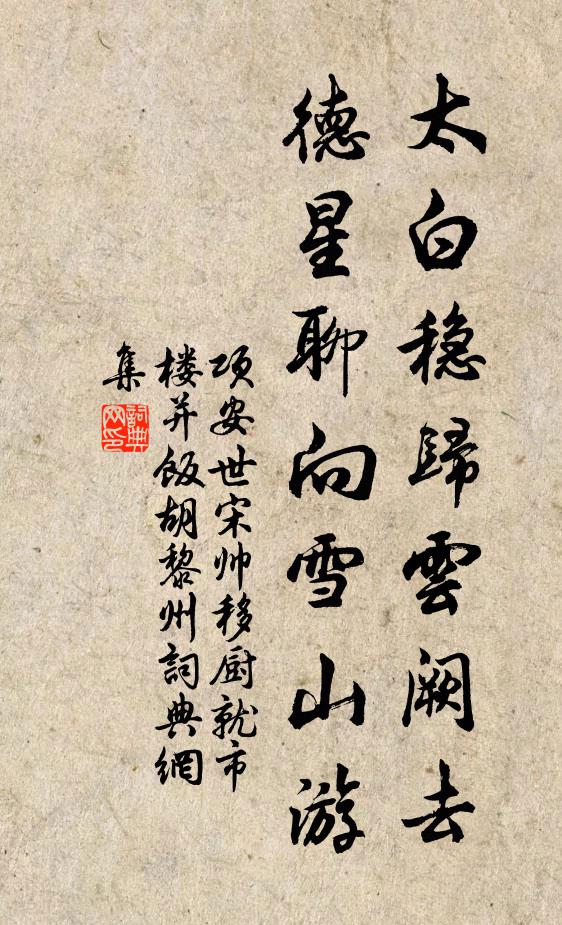 太白穏歸雲阙去
德星聊向雪山游
项安世宋帅移厨就市
楼并飯胡黎州詞典網
集
詞典
网印